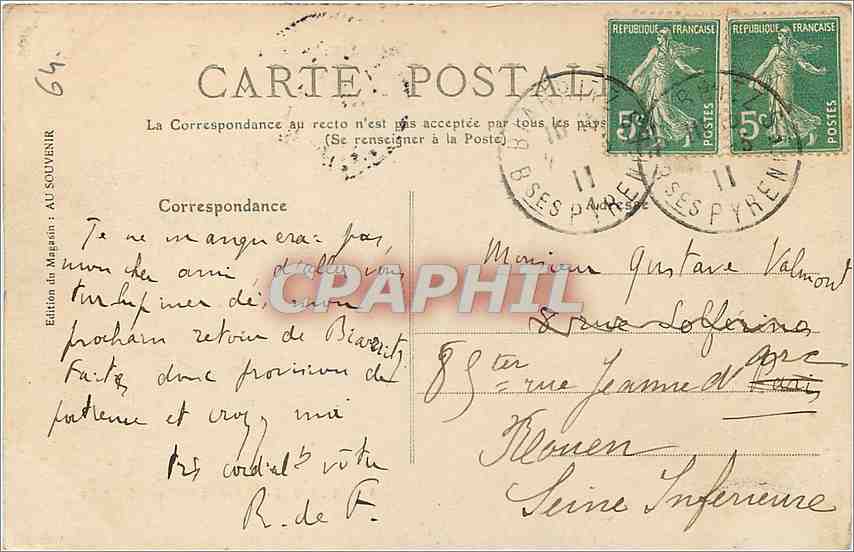 64.
CARTE POSTALE
La Correspondance au recto n'est pas acceptée par tous les pays
(Se renseigner à la Poste)
RÉPUBLIQUE FRANÇAISE
5c
POSTES
RÉPUBLIQUE FRANÇAISE
5c
POSTES
BIARRITZ
11
BSES PYRENEES
BIARRITZ
11
BSES PYRENEES
Edition du Magasin : AU SOUVENIR
Correspondance
Je ne manquerai pas,
mon cher ami, d'aller vous
dès mon
prochain retour de Biarritz
Faites donc provision de
patience et croyez moi
très cordialt vôtre
R. de F.
Adresse
Monsieur Gustave Valmont
rue Solferino
Arc
85 ter rue Jeanne d' Paris
Rouen
Seine Inferieure
CPAPHIL